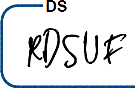 DS
RDSUF